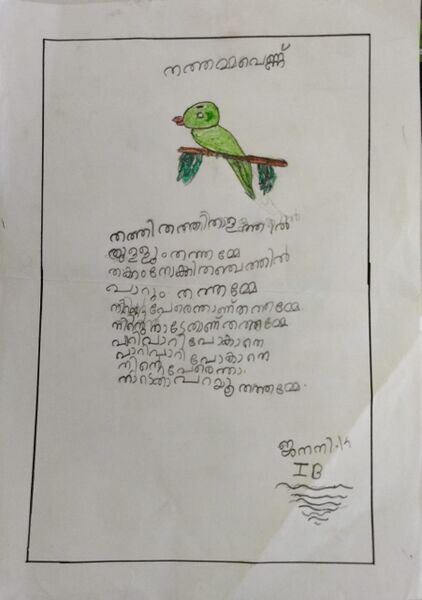 തത്തമ്മപെണ്ണ്
തത്തി തത്തിതാളത്തിൽ
തുള്ളും തത്തമ്മേ
തക്കം നോക്കി തഞ്ചത്തിൽ
പാറും തത്തമ്മേ
നിന്റെ പേരെന്താണ് തത്തമ്മേ
നിന്റെ നാടേതാണ് തത്തമ്മേ
പാറിപാറി പോകാനെ
പാറിപാറി പോകാനെ
നിന്റെ പേരെന്താ
നാടേതാ പറയൂ തത്തമ്മേ.
ജനനി
I B